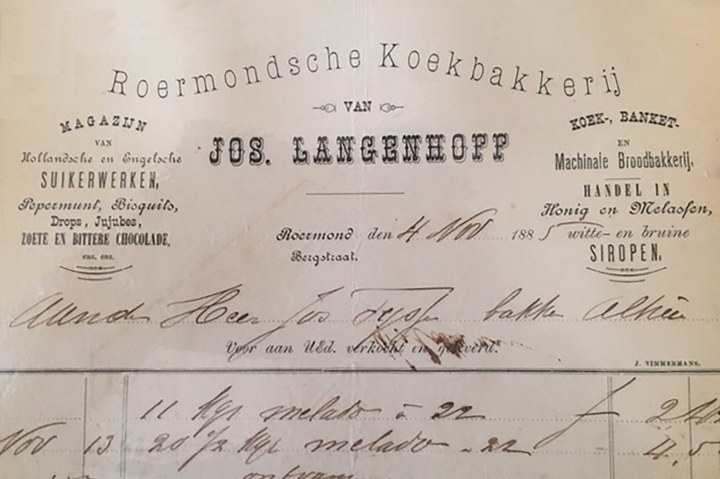 Roermondsche Koekbakkerij
VAN
JOS. LANGENHOFF
MAGAZIJN
VAN
Hollandsche en Engelsche
SUIKERWERKEN,
Pepermunt, Bisquits,
Drops, Jujubes,
ZOETE EN BITTERE CHOCOLADE,
ENZ. ENZ.
KOEK-, BANKET-
EN
Machinale Broodbakkerij,
HANDEL IN
Honig en Melassen,
witte- en bruine
SIROPEN.
Roermond den 4 Nov 1885
Bergstraat.
Heer Jos
Voor aan UEd. verkocht en geleverd.
J. TIMMERMANS.
11 Kgr melado à 22 f 2
Nov 13 20 1/2 Kgr melado - 22 4,5